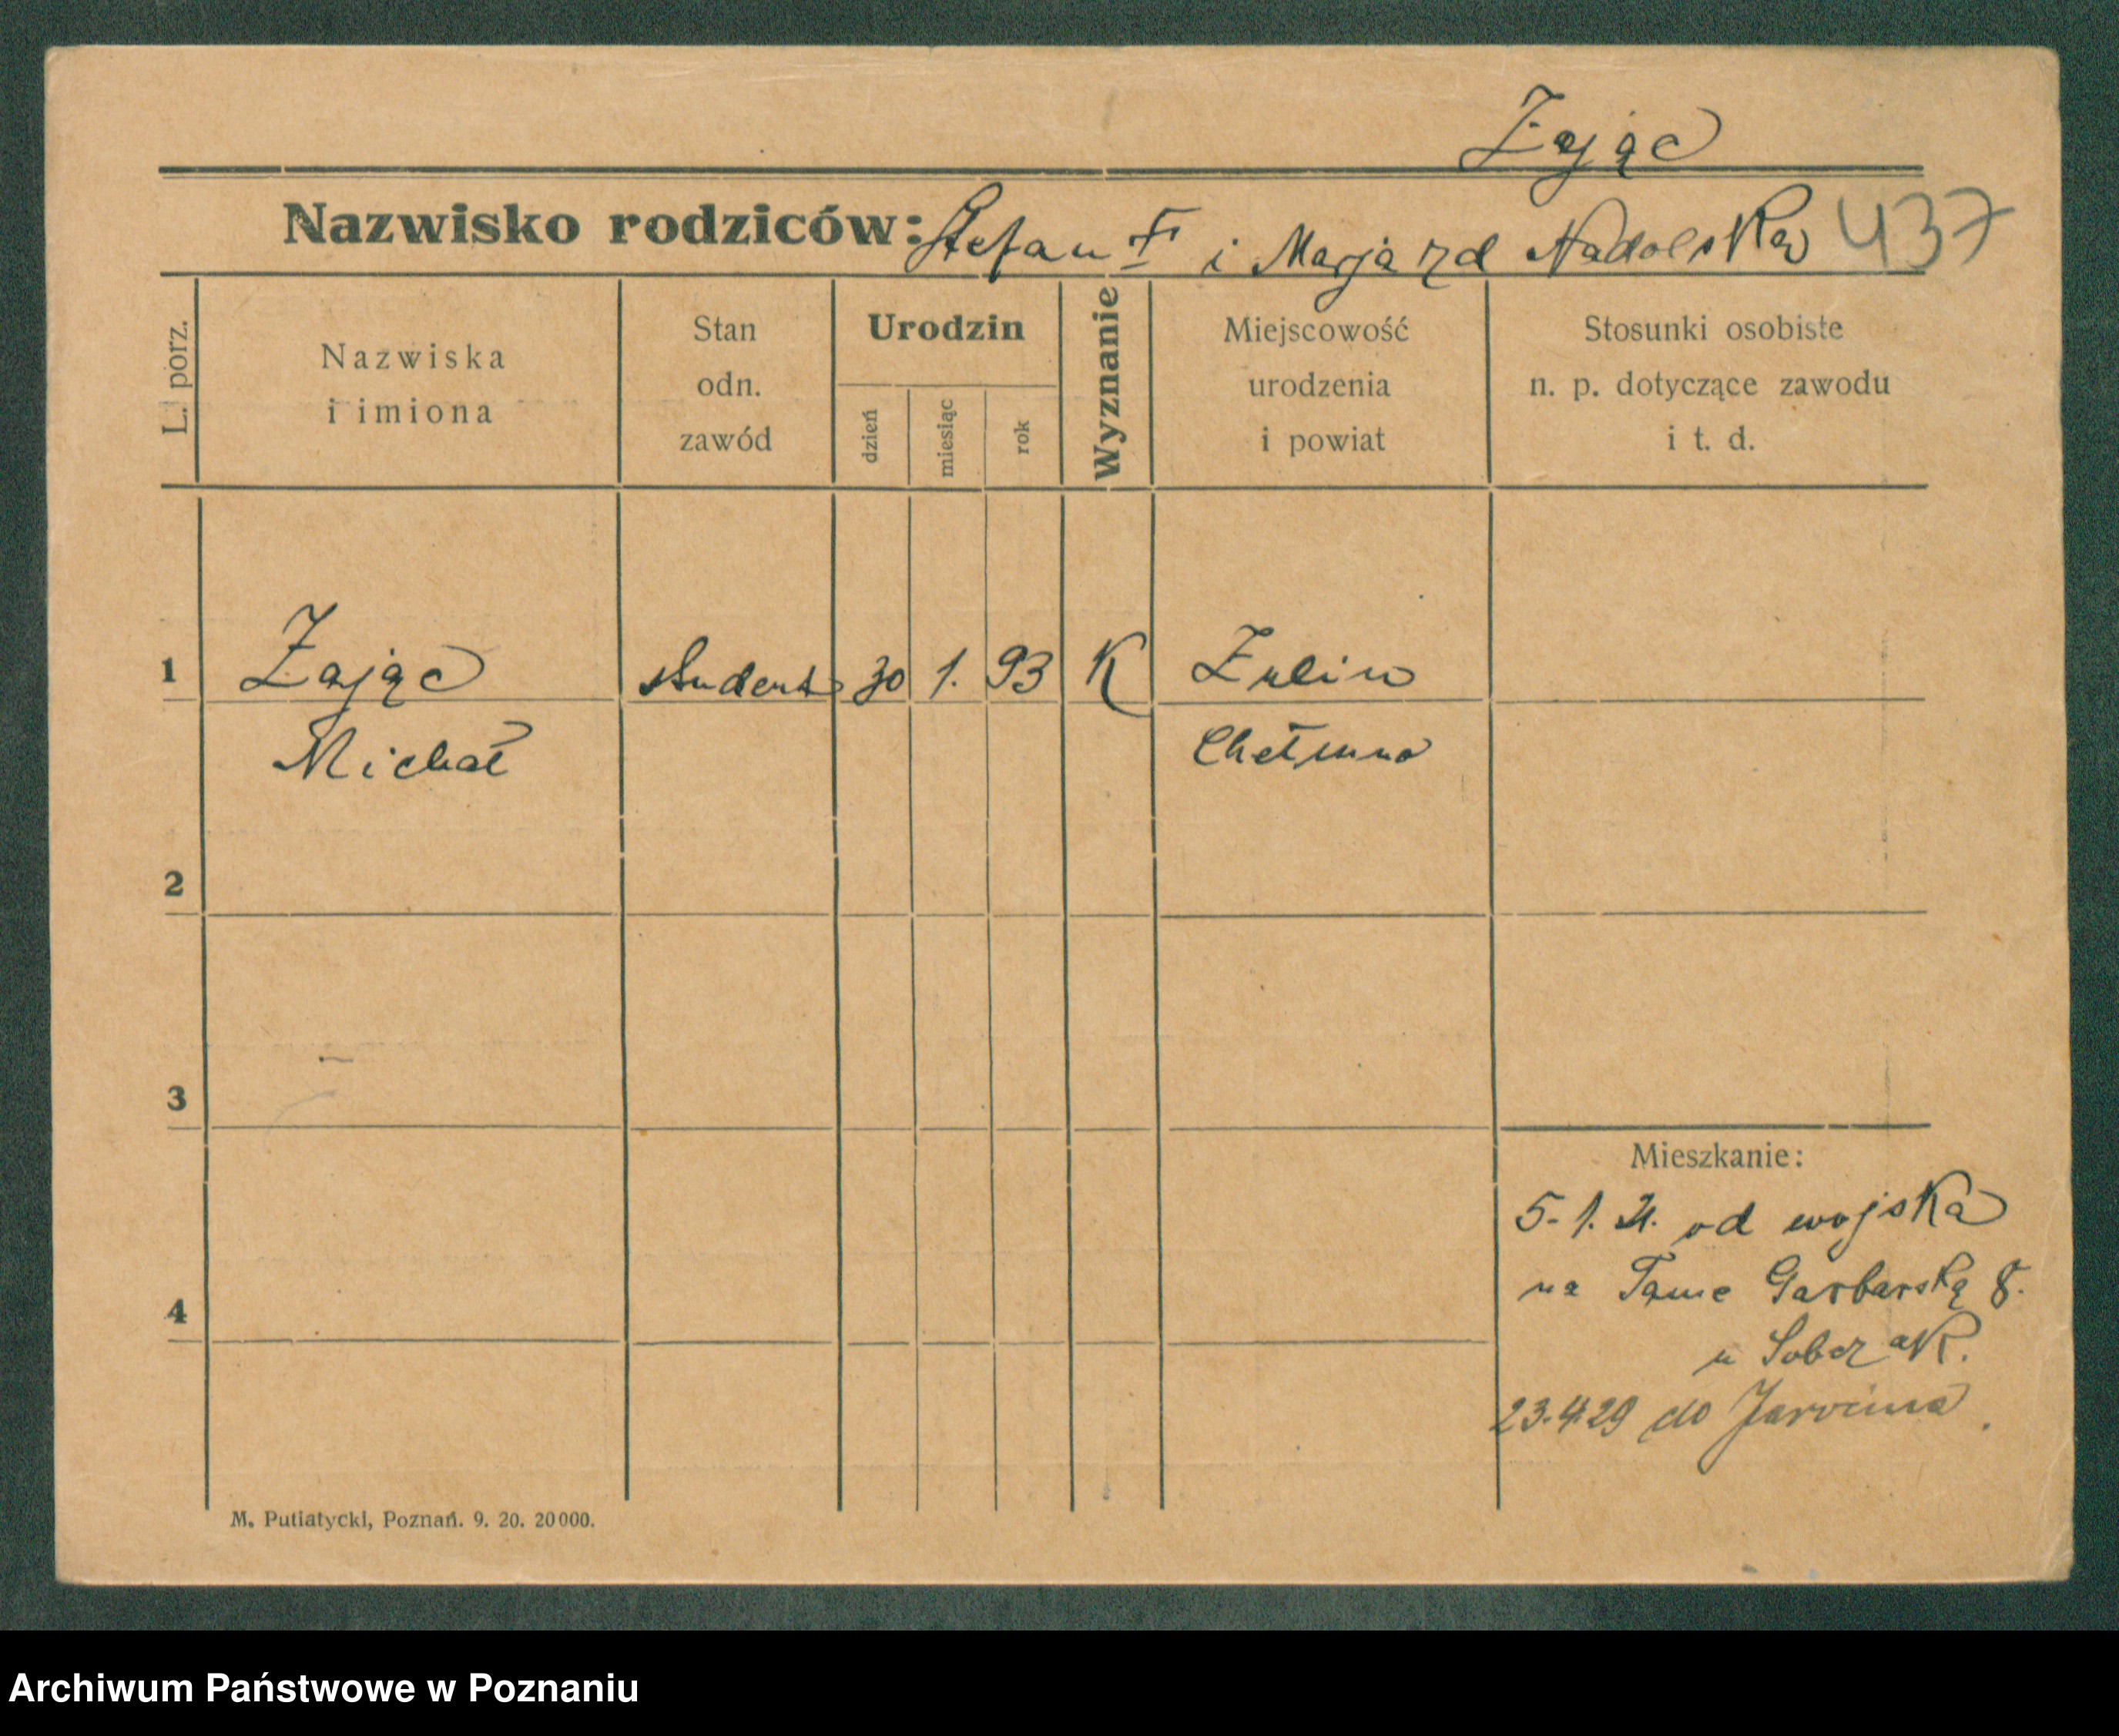 Zając
Nazwisko rodziców: Stefan † i Marja rd Nadolska 437
L. porz.
Nazwiska
i imiona
Stan
odn.
zawód
Urodzin
dzień
miesiąc
rok
Wyznanie
Miejscowość
urodzenia
i powiat
Stosunki osobiste
n. p. dotyczące zawodu
i t. d.
1 Zając student 30 1. 93 K
Michał Chełmno
2
3
4
Mieszkanie:
5.1.21. od wojska
na Tamę Garbarską 8.
u Sobczak.
23.4.29 do
M. Putiatycki, Poznań. 9. 20. 20000.
Archiwum Państwowe w Poznaniu